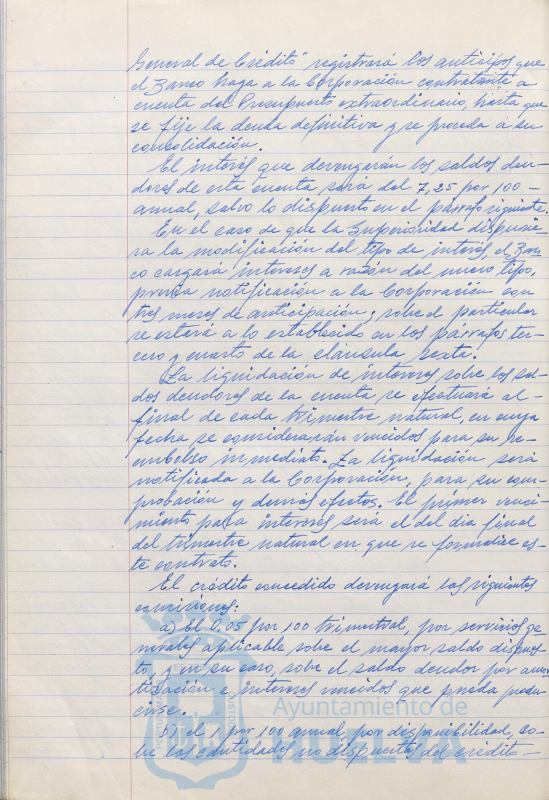 General de Crédito" registrará los anticipos que
el Banco haga a la Corporación contratante a
cuenta del Presupuesto extraordinario, hasta que
se fije la deuda definitiva y se proceda a su
consolidación.
El interés que devengarán los saldos deu-
dores de esta cuenta, será del 7,25 por 100 -
anual, salvo lo dispuesto en el párrafo siguiente.
En el caso de que la Superioridad dispusie-
ra la modificación del tipo de interés, el Ban-
co cargará intereses a razón del nuevo tipo,
previa notificación a la Corporación con
tres meses de anticipación; sobre el particular
se estará a lo establecido en los párrafos ter-
cero y cuarto de la cláusula sexta.
La liquidación de intereses sobre los sal-
dos deudores de la cuenta se efectuará al -
final de cada trimestre natural, en cuya
fecha se considerarán vencidos para su re-
embolso inmediato. La liquidación será
notificada a la Corporación, para su com-
probación y demás efectos. El primer venci-
miento para intereses será el del día final
del trimestre natural en que se formalice es-
te contrato.
El crédito concedido devengará las siguientes
comisiones:
a) El 0,05 por 100 trimestral, por servicios ge
nerales aplicable sobre el mayor saldo dispues-
to, y en su caso, sobre el saldo deudor por amor
tización e intereses vencidos que pueda produ-
cirse.
b) El 1 por 100 annual, por disponibilidad, so-
bre las cantidades no dispuestas del crédito -
Ayuntamiento de
HUELVA